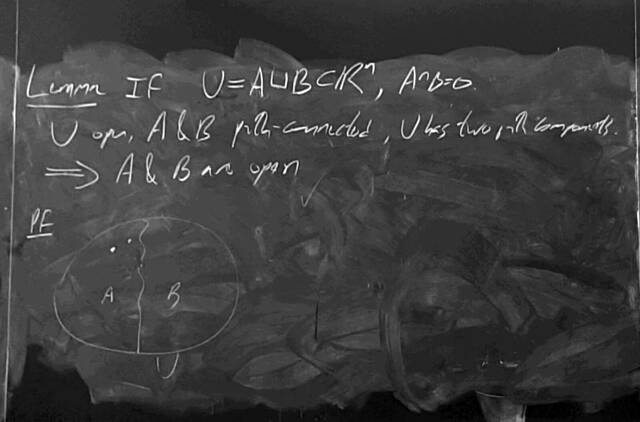 Lemma IF U = A ⊔ B ⊂ ℝⁿ, A∩B=∅.
U open, A & B path-connected, U has two path components.
⟹ A & B are open
PF
A B
U